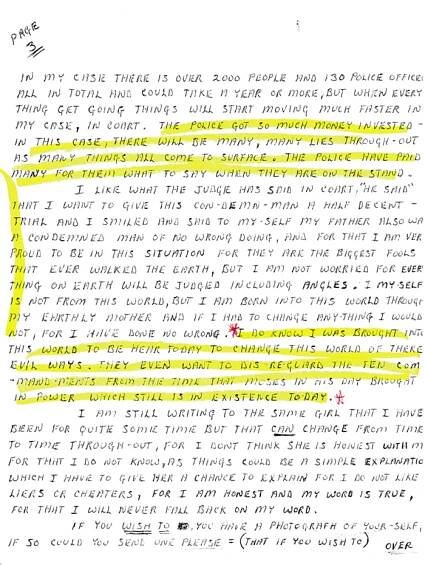 PAGE
3
IN MY CASE THERE IS OVER 2000 PEOPLE AND 130 POLICE OFFICE
ALL IN TOTAL AND COULD TAKE A YEAR OR MORE, BUT WHEN EVERY
THING GET GOING THINGS WILL START MOVING MUCH FASTER IN
MY CASE, IN COART. THE POLICE GOT SO MUCH MONEY INVESTED -
IN THIS CASE, THERE WILL BE MANY, MANY LIES THROUGH-OUT
AS MANY THINGS ALL COME TO SURFACE. THE POLICE HAVE PAID
MANY FOR THEM WHAT TO SAY WHEN THEY ARE ON THE STAND.
I LIKE WHAT THE JUDGE HAS SAID IN COART, "HE SAID"
THAT I WANT TO GIVE THIS CON-DEMN-MAN A HALF DECENT -
TRIAL AND I SMILED AND SAID TO MY-SELF MY FATHER ALSO WA
A CONDEMNED MAN OF NO WRONG DOING, AND FOR THAT I AM VER
PROUD TO BE IN THIS SITUATION FOR THEY ARE THE BIGGEST FOOLS
THAT EVER WALKED THE EARTH, BUT I AM NOT WORRIED FOR EVER
THING ON EARTH WILL BE JUDGED INCLUDING ANGLES. I MY-SELF
IS NOT FROM THIS WORLD, BUT I AM BORN INTO THIS WORLD THROUGH
MY EARTHLY MOTHER AND IF I HAD TO CHANGE ANY-THING I WOULD
NOT, FOR I HAVE DONE NO WRONG. *I DO KNOW I WAS BROUGHT INTO
THIS WORLD TO BE HEAR TODAY TO CHANGE THIS WORLD OF THERE
EVIL WAYS. THEY EVEN WANT TO DIS-REGUARD THE TEN COM
-MAND-MENTS FROM THE TIME THAT MOSES IN HIS DAY BROUGHT
IN POWER WHICH STILL IS IN EXISTENCE TODAY. *
I AM STILL WRITING TO THE SAME GIRL THAT I HAVE
BEEN FOR QUITE SOME TIME BUT THAT CAN CHANGE FROM TIME
TO TIME THROUGH-OUT, FOR I DONT THINK SHE IS HONEST WITH M
FOR THAT I DO NOT KNOW, AS THINGS COULD BE A SIMPLE EXPLANATIO
WHICH I HAVE TO GIVE HER A CHANCE TO EXPLAIN FOR I DO NOT LIKE
LIERS OR CHEATERS, FOR I AM HONEST AND MY WORD IS TRUE,
FOR THAT I WILL NEVER FALL BACK ON MY WORD.
IF YOU WISH TO, YOU HAVE A PHOTOGRAFH OF YOUR-SELF,
IF SO COULD YOU SEND ONE PLEASE = (THAT IF YOU WISH TO) OVER